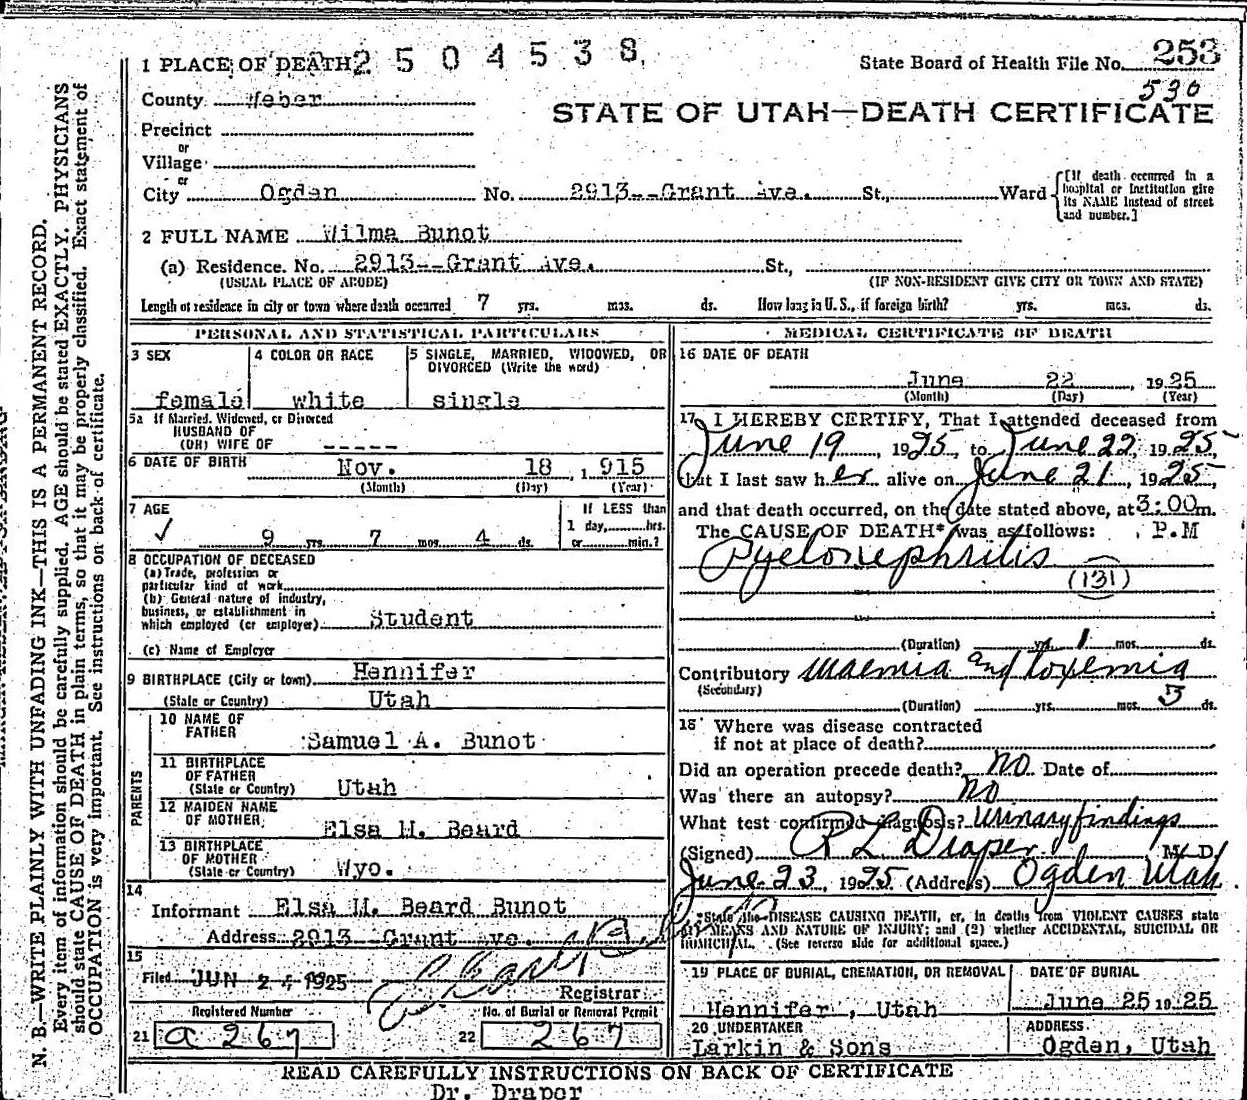 1 PLACE OF DEATH 2 5 0 4 5 3 8
State Board of Health File No. 253
530
County Weber
STATE OF UTAH—DEATH CERTIFICATE
Precinct
or
Village
or
City Ogden No. 2913--Grant Ave. St., Ward
[If death occurred in a hospital or institution give its NAME instead of street and number.]
2 FULL NAME Wilma Bunot
(a) Residence. No. 2913--Grant Ave. St.,
(USUAL PLACE OF ABODE) (IF NON-RESIDENT GIVE CITY OR TOWN AND STATE)
Length of residence in city or town where death occurred 7 yrs. mos. ds. How long in U. S., if foreign birth? yrs. mos. ds.
PERSONAL AND STATISTICAL PARTICULARS
3 SEX
female
4 COLOR OR RACE
white
5 SINGLE, MARRIED, WIDOWED, OR
DIVORCED (Write the word)
single
5a If Married, Widowed, or Divorced
HUSBAND OF
(OR) WIFE OF -----
6 DATE OF BIRTH Nov. 18, 1915
(Month) (Day) (Year)
7 AGE
✓ 9 yrs. 7 mos. 4 ds.
If LESS than
1 day, hrs.
or min.?
8 OCCUPATION OF DECEASED
(a) Trade, profession or
particular kind of work
(b) General nature of industry,
business, or establishment in
which employed (or employer) Student
(c) Name of Employer
9 BIRTHPLACE (City or town) Hennifer
(State or Country) Utah
PARENTS
10 NAME OF
FATHER Samuel A. Bunot
11 BIRTHPLACE
OF FATHER
(State or Country) Utah
12 MAIDEN NAME
OF MOTHER Elsa M. Beard
13 BIRTHPLACE
OF MOTHER
(State or Country) Wyo.
14
Informant Elsa M. Beard Bunot
Address 2913 Grant Ave.
15
Filed JUN 24 1925
Registrar
Registered Number
21 a 267
No. of Burial or Removal Permit
22 267
MEDICAL CERTIFICATE OF DEATH
16 DATE OF DEATH
June 22, 1925
(Month) (Day) (Year)
17 I HEREBY CERTIFY, That I attended deceased from
June 19, 1925, to June 22, 1925
that I last saw her alive on June 21, 1925,
and that death occurred, on the date stated above, at 3:00 m.
The CAUSE OF DEATH* was as follows: P.M
Pyelonephritis
(131)
(Duration) yrs. 1 mos. ds.
Contributory uraemia and toxemia
(Secondary)
(Duration) yrs. mos. 3 ds.
18 Where was disease contracted
if not at place of death?
Did an operation precede death? no Date of
Was there an autopsy? no
What test confirmed diagnosis? Urinary findings
(Signed) R L Draper M. D.
June 23, 1925 (Address) Ogden Utah
*State the DISEASE CAUSING DEATH, or, in deaths from VIOLENT CAUSES state
(1) MEANS AND NATURE OF INJURY; and (2) whether ACCIDENTAL, SUICIDAL OR
HOMICIDAL. (See reverse side for additional space.)
19 PLACE OF BURIAL, CREMATION, OR REMOVAL
Hennifer, Utah
DATE OF BURIAL
June 25 1925
20 UNDERTAKER
Larkin & Sons
ADDRESS
Ogden, Utah
READ CAREFULLY INSTRUCTIONS ON BACK OF CERTIFICATE
Dr. Draper
N. B.—WRITE PLAINLY WITH UNFADING INK—THIS IS A PERMANENT RECORD.
Every item of information should be carefully supplied. AGE should be stated EXACTLY. PHYSICIANS
should state CAUSE OF DEATH in plain terms, so that it may be properly classified. Exact statement of
OCCUPATION is very important. See instructions on back of certificate.